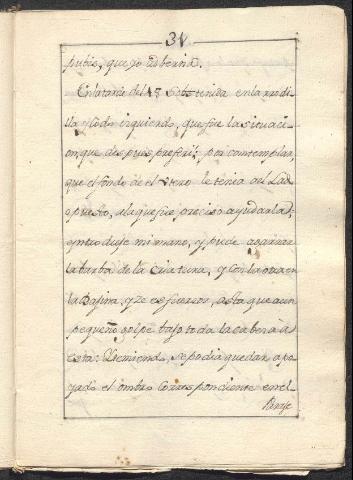 31
pubis, que yo
En la tarde del 15 obtenida en la rodi
lla y codo izquierdo, que fue la situaci
on, que despues preferi, por contemplar,
que el fondo de el Utero le tenia al Lado
opuesto, a la que fue preciso ayudarla
introduje mi mano, y pude agarrar
la barba de la Criatura, y con la otra en
la Bajina, y de esfuersos, asta que a un
pequeño golpe bajo toda la cabeza a
esta: temiendo, se podia quedar apo
yado el ombro Correspondiente en el
Paraje